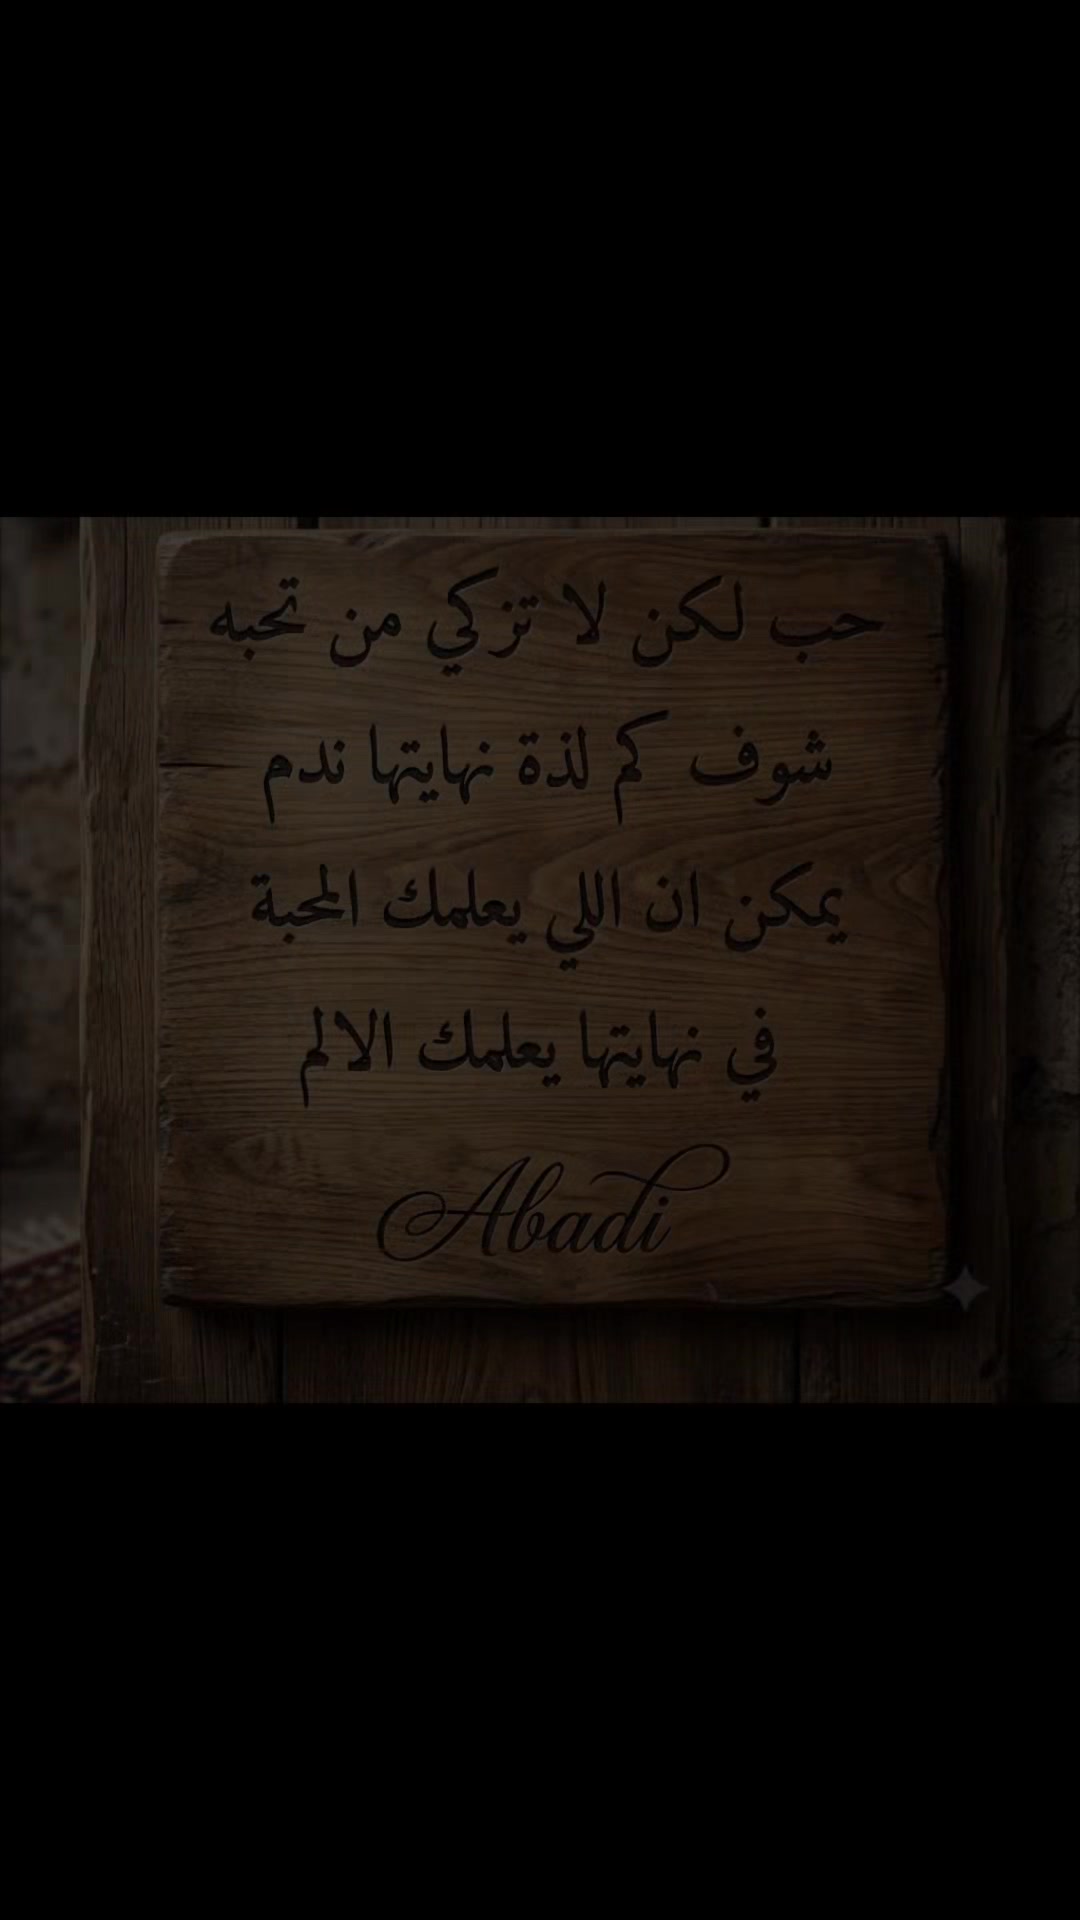 حب لكن لا تزكي من تحبه
شوف كم لذة نهايتها ندم
يمكن ان اللي يعلمك المحبة
في نهايتها يعلمك الالم
Abadi